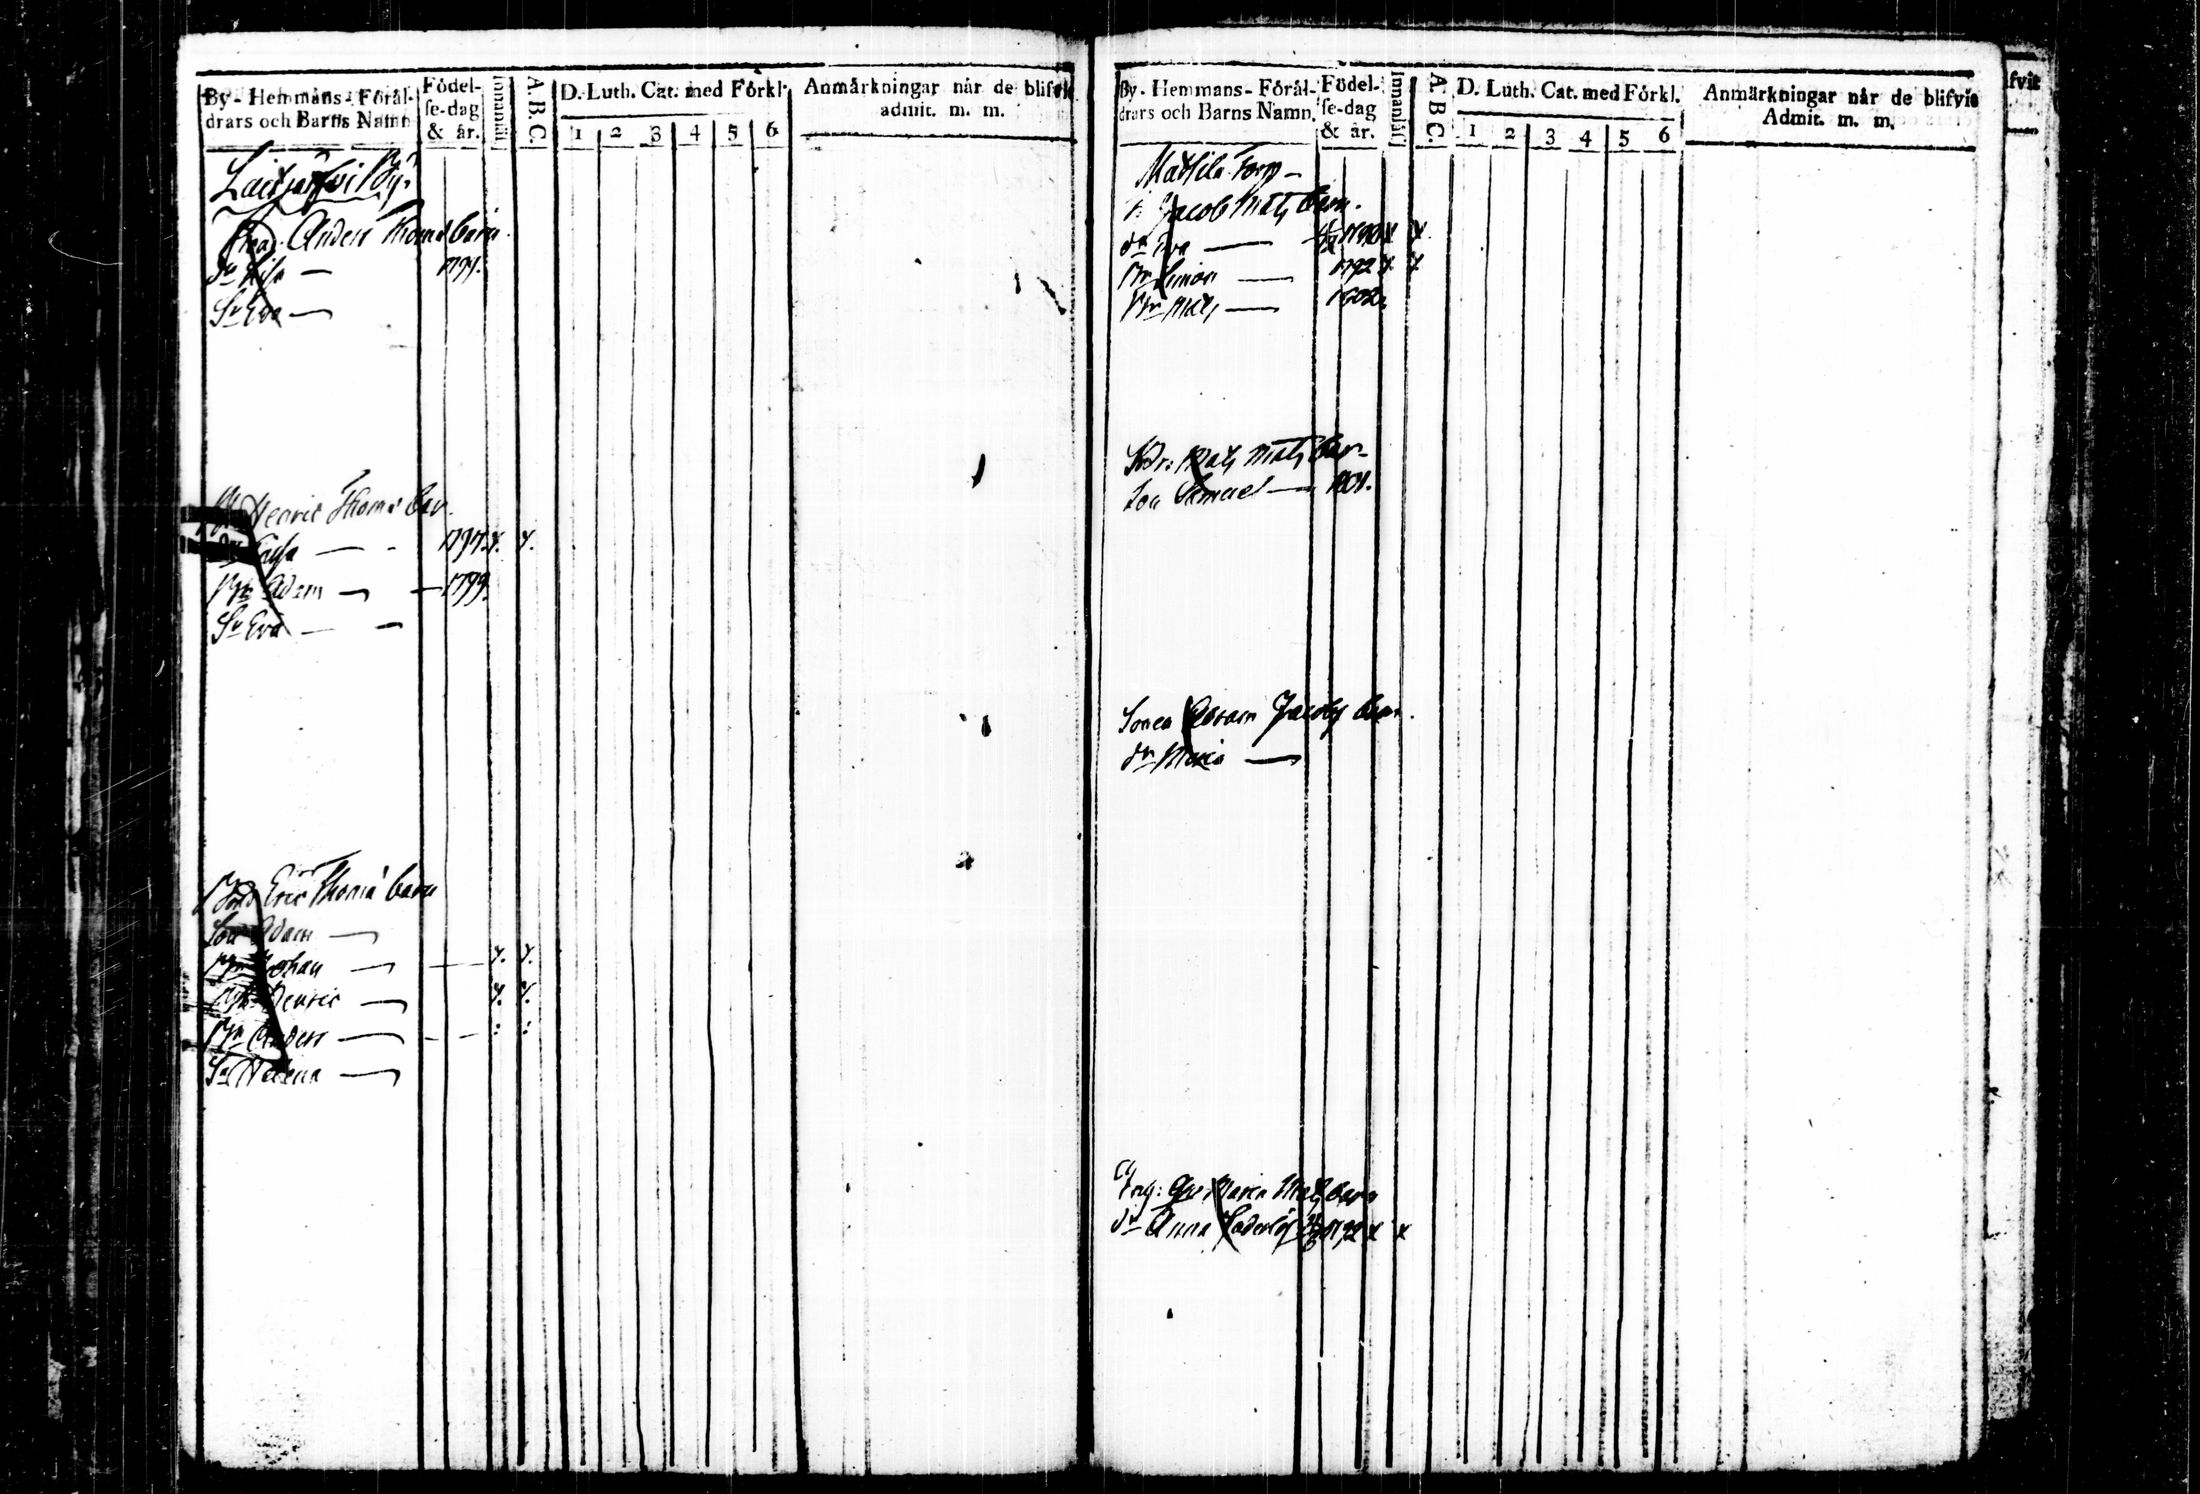 By - Hemmans - Föräl-
drars och Barns Namn
Födel-
se-dag
& år.
Innanläs
A. B. C.
D. Luth. Cat. med Förkl.
1 2 3 4 5 6
Anmärkningar når de blifvit
admit. m. m.
By.
Anders Thomæ barn
1799.
Sr Eva —
Henric Thomæ bar.
1797. x. x.
Adam — 1799.
Sr Eva — —
Eric Thomæ barn
Son Adam —
Johan — x. x.
Henric — x. x.
Anders —
Sr Helena —
By - Hemmans - Föräl-
drars och Barns Namn.
Födel-
se-dag
& år.
Innanläs
A. B. C.
D. Luth. Cat. med Förkl.
1 2 3 4 5 6
Anmärkningar når de blifvit
Admit. m. m.
Mattila Torp —
Jacob Mats barn.
dr Eva — x x
Simon — 1792 x x
Mats — 1802
Mats Mats bar-
Son Samuel — 1801.
Abram Jacobs barn.
dr Maria —
Maria Mats barn
dr Anna 1792 x x
fvit